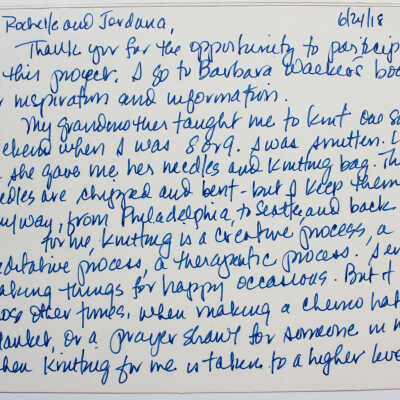 Rochelle and Jordana, 6/24/18
Thank you for the opportunity to particip
this project. I go to Barbara Walker's boo
inspiration and information.
My grandmother taught me to knit one
weekend when I was 8 or 9. I was smitten. L
she gave me her needles and knitting bag. Th
dles are chipped and bent - but I keep them
yway, from Philadelphia, to Seattle and back
for me, knitting is a creative process, a
editative process, a therapeutic process. I en
aking things for happy occasions. But it
ose other times, when making a chemo hat
lanket, or a prayer shawl for someone in n
hen knitting for me is taken to a higher leve